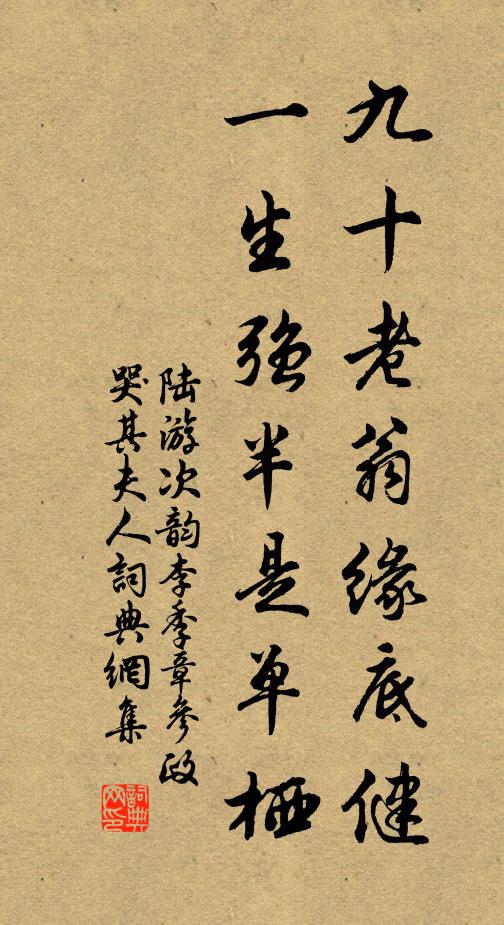 九十老翁缘底健
一生强半是单栖
陆游次韵李季章参政
哭其夫人詞典網集
詞典網印